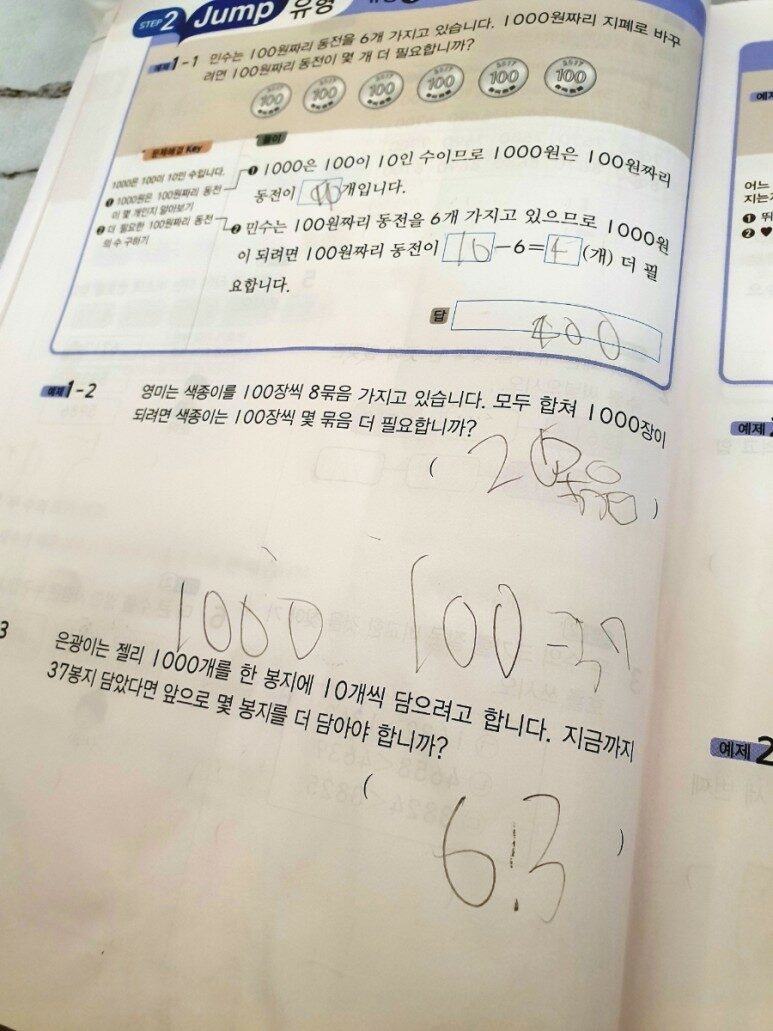 STEP 2 Jump 유형
예제 1-1 민수는 100원짜리 동전을 6개 가지고 있습니다. 1000원짜리 지폐로 바꾸
려면 100원짜리 동전이 몇 개 더 필요합니까?
100 100 100 100 100 100
문제해결 Key
1000은 100이 10인 수입니다.
❶ 1000원은 100원짜리 동전
이 몇 개인지 알아보기
❷ 더 필요한 100원짜리 동전
의 수 구하기
풀이
❶ 1000은 100이 10인 수이므로 1000원은 100원짜리
동전이 10개입니다.
❷ 민수는 100원짜리 동전을 6개 가지고 있으므로 1000원
이 되려면 100원짜리 동전이 10-6=4(개) 더 필
요합니다.
답 400
예제 1-2 영미는 색종이를 100장씩 8묶음 가지고 있습니다. 모두 합쳐 1000장이
되려면 색종이는 100장씩 몇 묶음 더 필요합니까?
( 2 묶음 )
1000 100 = 37
3 은광이는 젤리 1000개를 한 봉지에 10개씩 담으려고 합니다. 지금까지
37봉지 담았다면 앞으로 몇 봉지를 더 담아야 합니까?
( 63 )
어느
❶
❷ ♥
예제
예제 2